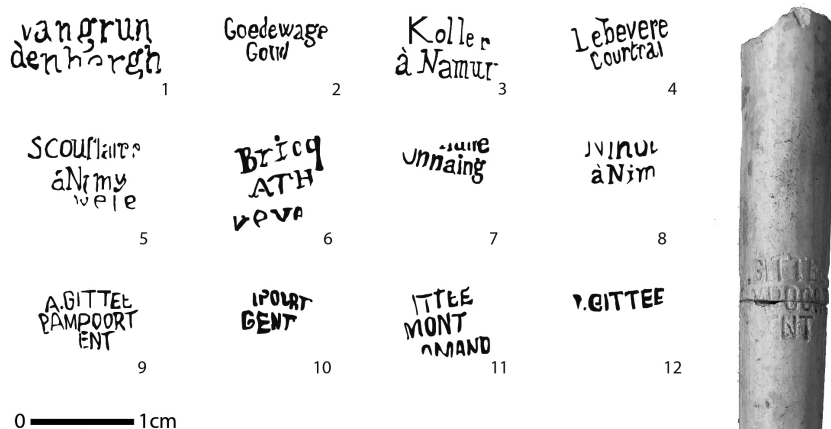 vangrun
denbergh
1
Goedewage
Goud
2
Koller
à Namur
3
Lebevere
Courtrai
4
Scouflaire
à Nimy
5
Bricq
ATH
veuv
6
Onnaing
7
à Nim
8
A.GITTEE
PAMPOORT
ENT
9
IPOORT
GENT
10
ITTEE
MONT
OMAND
11
.GITTEE
12
GITTE
MPOOR
NT
0 1cm